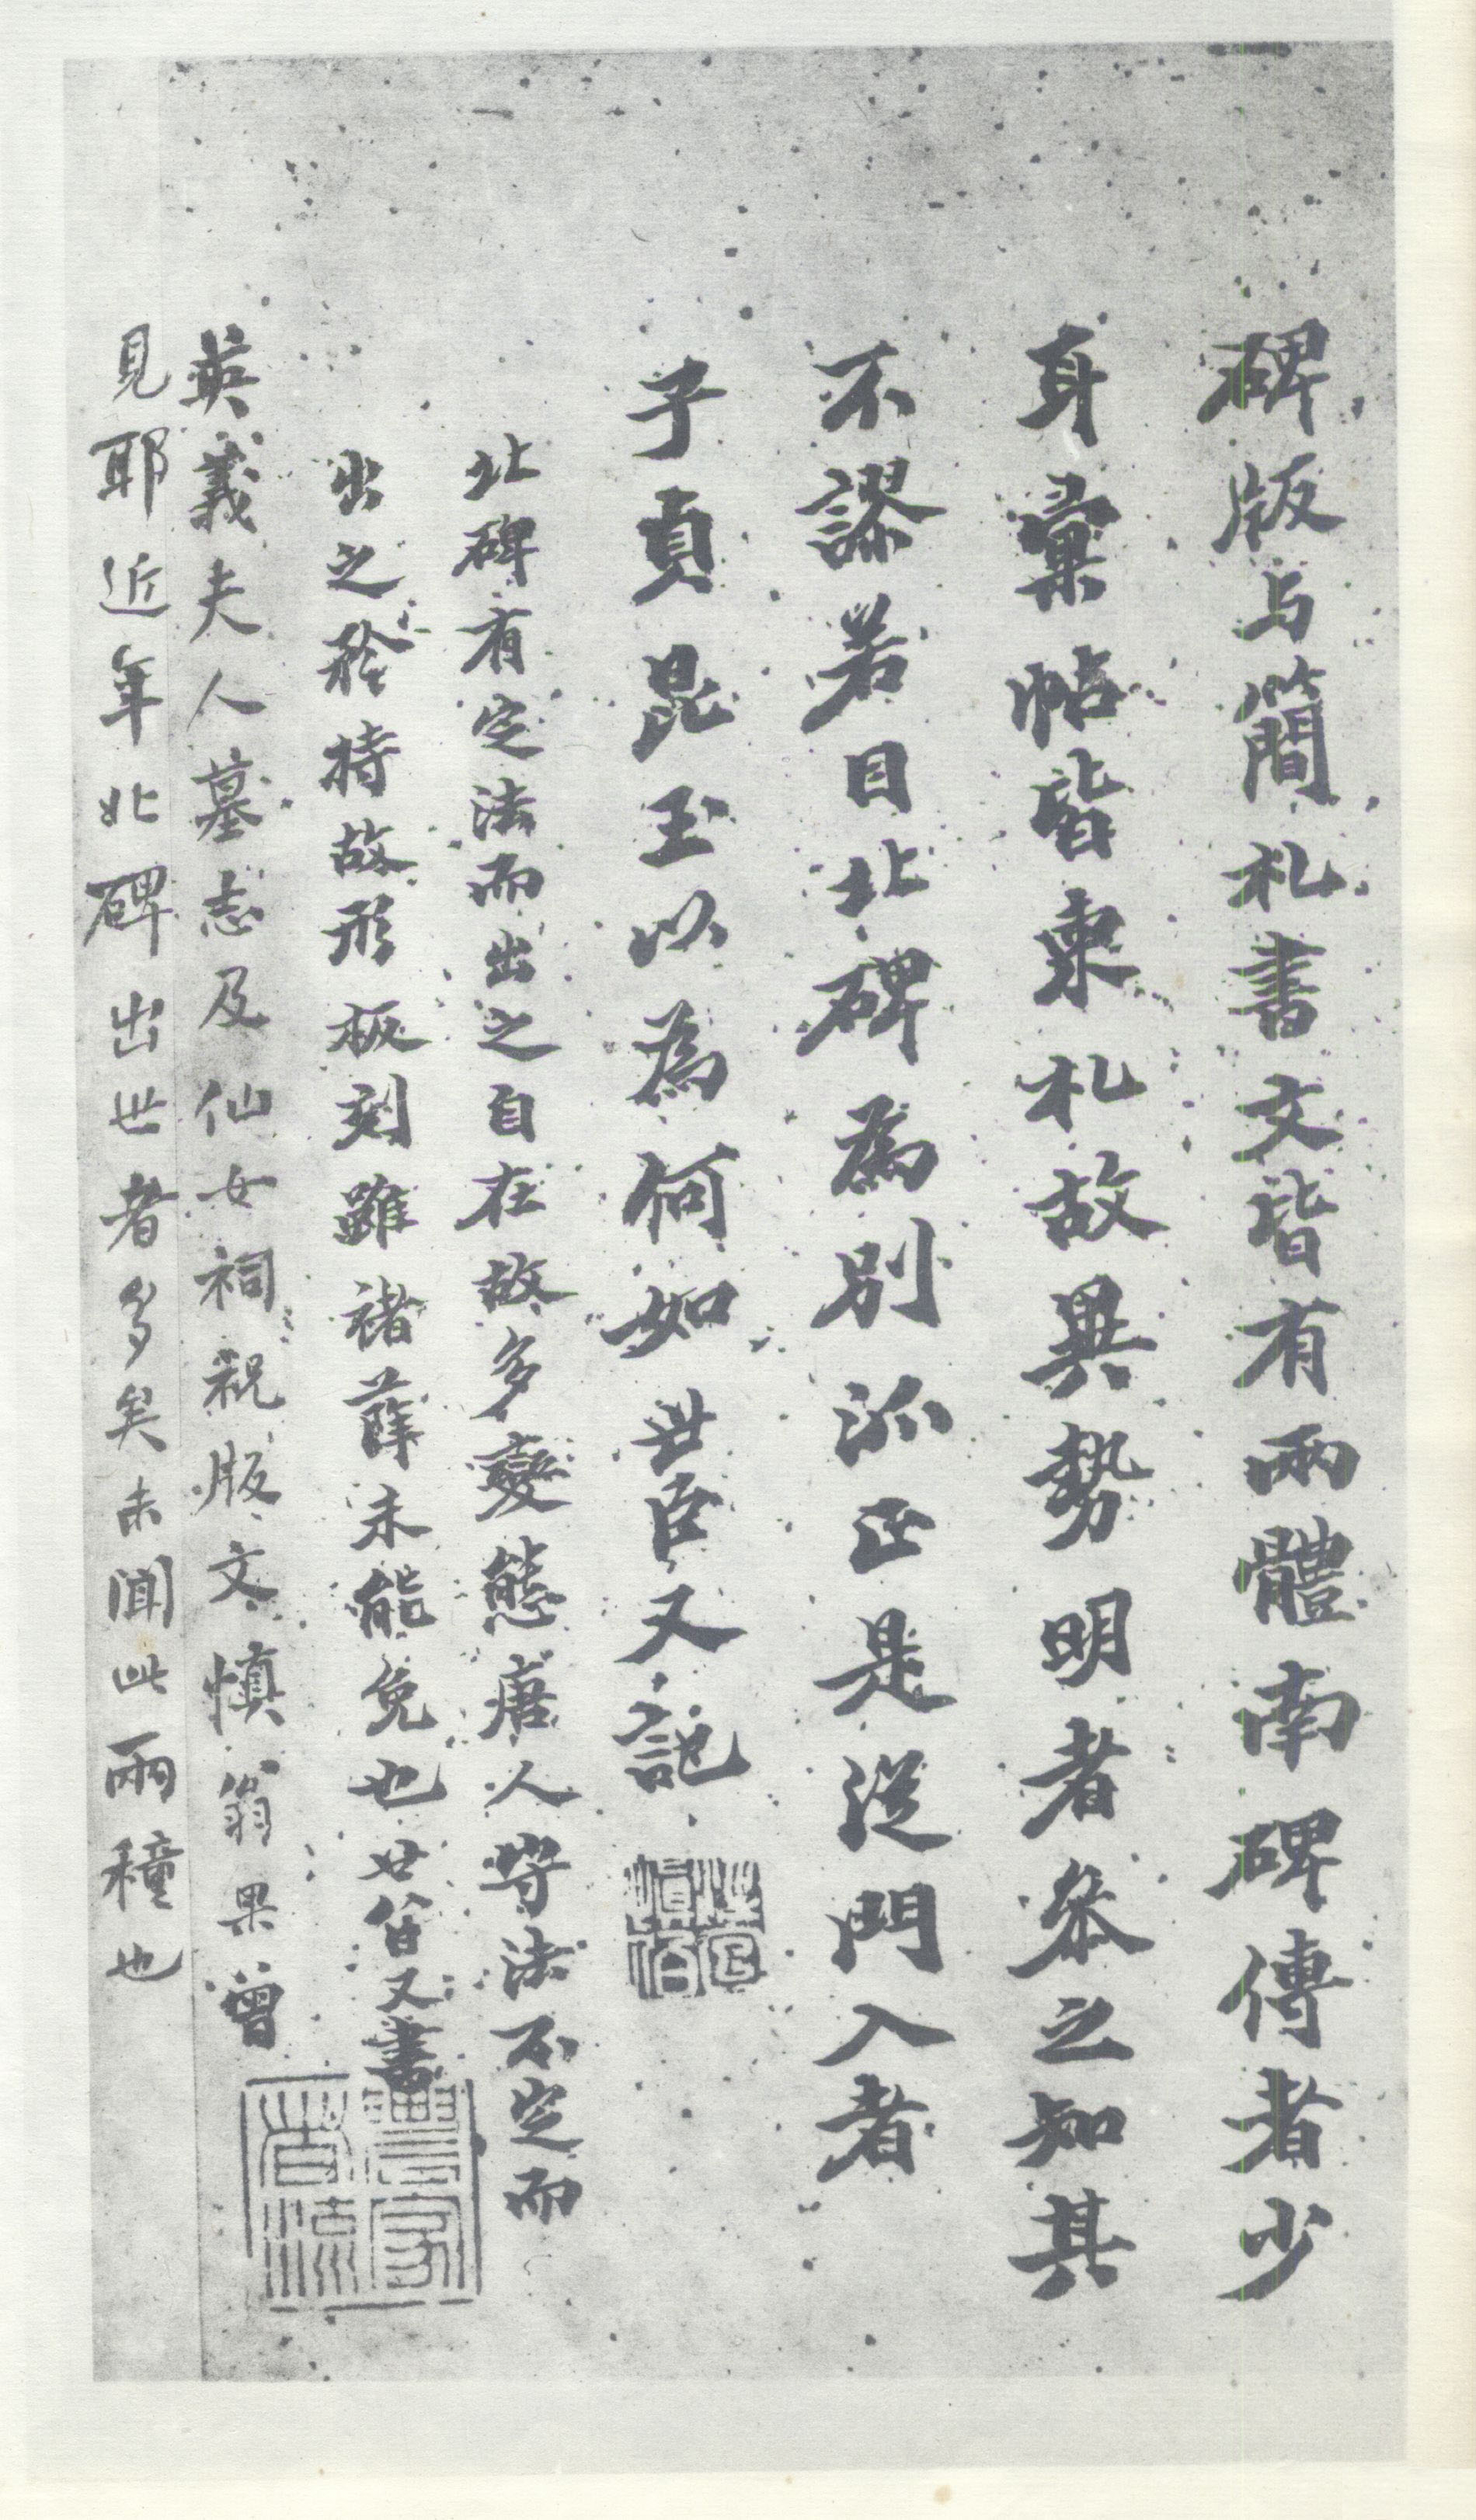 碑版与簡札書文皆有兩體南碑傳者少
耳彙帖皆柬札故異勢明者叅之知其
不謬若目北碑為別派正是從門入者
子貞昆玉以為何如 世臣又記
北碑有定法而出之自在故多變態唐人書法不定而
出之矜持故形板刻雖褚薛未能免也廿八日又書
英義夫人墓志及仙女祠祝版文慎翁果曾
見耶近年北碑出世者多矣未聞此兩種也